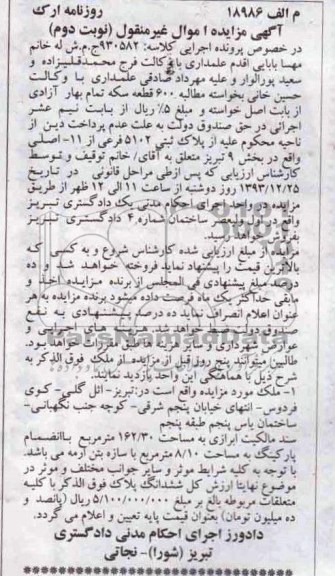 م الف ۱۸۹۸۶ روزنامه ارک
آگهی مزایده اموال غیرمنقول (نوبت دوم)
در خصوص پرونده اجرایی کلاسه: ۹۳۰۵۸۲ج.م.ش له خانم
مهسا بابایی اقدم علمداری با وکالت فرج محمدقلیزاده و
سعید پورالوار و علیه مهرداد صادقی علمداری با وکالت
حسین خانی بخواسته مطالبه ۶۰۰ قطعه سکه تمام بهار آزادی
از بابت اصل خواسته و مبلغ ۵٪ ریال از بابت نیم عشر
اجرائی در حق صندوق دولت به علت عدم پرداخت دین از
ناحیه محکوم علیه از پلاک ثبتی ۵۱۰۲ فرعی از ۱۱- اصلی
واقع در بخش ۹ تبریز متعلق به آقای/ خانم توقیف و توسط
کارشناس ارزیابی که پس ازطی مراحل قانونی در تاریخ
۱۳۹۳/۱۲/۲۵ روز دوشنبه از ساعت ۱۱ الی ۱۲ ظهر از طریق
مزایده در واحد اجرای احکام مدنی یک دادگستری تبریز
واقع در اول ولیعصر ساختمان شماره ۴ دادگستری تبریز
بفروش خواهد رسید.
مزایده از مبلغ ارزیابی شده کارشناس شروع و به کسی که
بالاترین قیمت را پیشنهاد نماید فروخته خواهد شد و ده
درصد مبلغ پیشنهادی فی المجلس از برنده مزایده اخذ و
مابقی حداکثر یک ماه فرصت داده میشود برنده مزایده به هر
عنوان اعلام انصراف نماید ده درصد پیشنهادی به نفع
صندوق دولت ضبط خواهد شد. هزینه های اجرایی و
طالبین میتوانند پنج روز قبل از مزایده از ملک فوق الذکر به
شرح ذیل با هماهنگی این واحد بازدید نمائید.
۱- ملک مورد مزایده واقع است در: تبریز- ائل گلی- کوی
فردوس- انتهای خیابان پنجم شرقی- کوچه جنب نگهبانی-
ساختمان یاس پنجم طبقه پنجم
سند مالکیت ابرازی به مساحت ۱۶۲/۳۰ مترمربع باانضمام
پارکینگ به مساحت ۸/۱۰ مترمربع با سازه بتن آرمه می باشد.
با توجه به کلیه شرایط موثر و سایر جوانب مختلف و موثر در
موضوع نهایتا ارزش کل ششدانگ پلاک فوق الذکر با کلیه
متعلقات مربوطه بالغ بر مبلغ ۵/۱۰۰/۰۰۰/۰۰۰ ریال (پانصد و
ده میلیون تومان) بعنوان قیمت پایه تعیین و اعلام می گردد.
دادورز اجرای احکام مدنی دادگستری
تبریز (شورا)- نجاتی